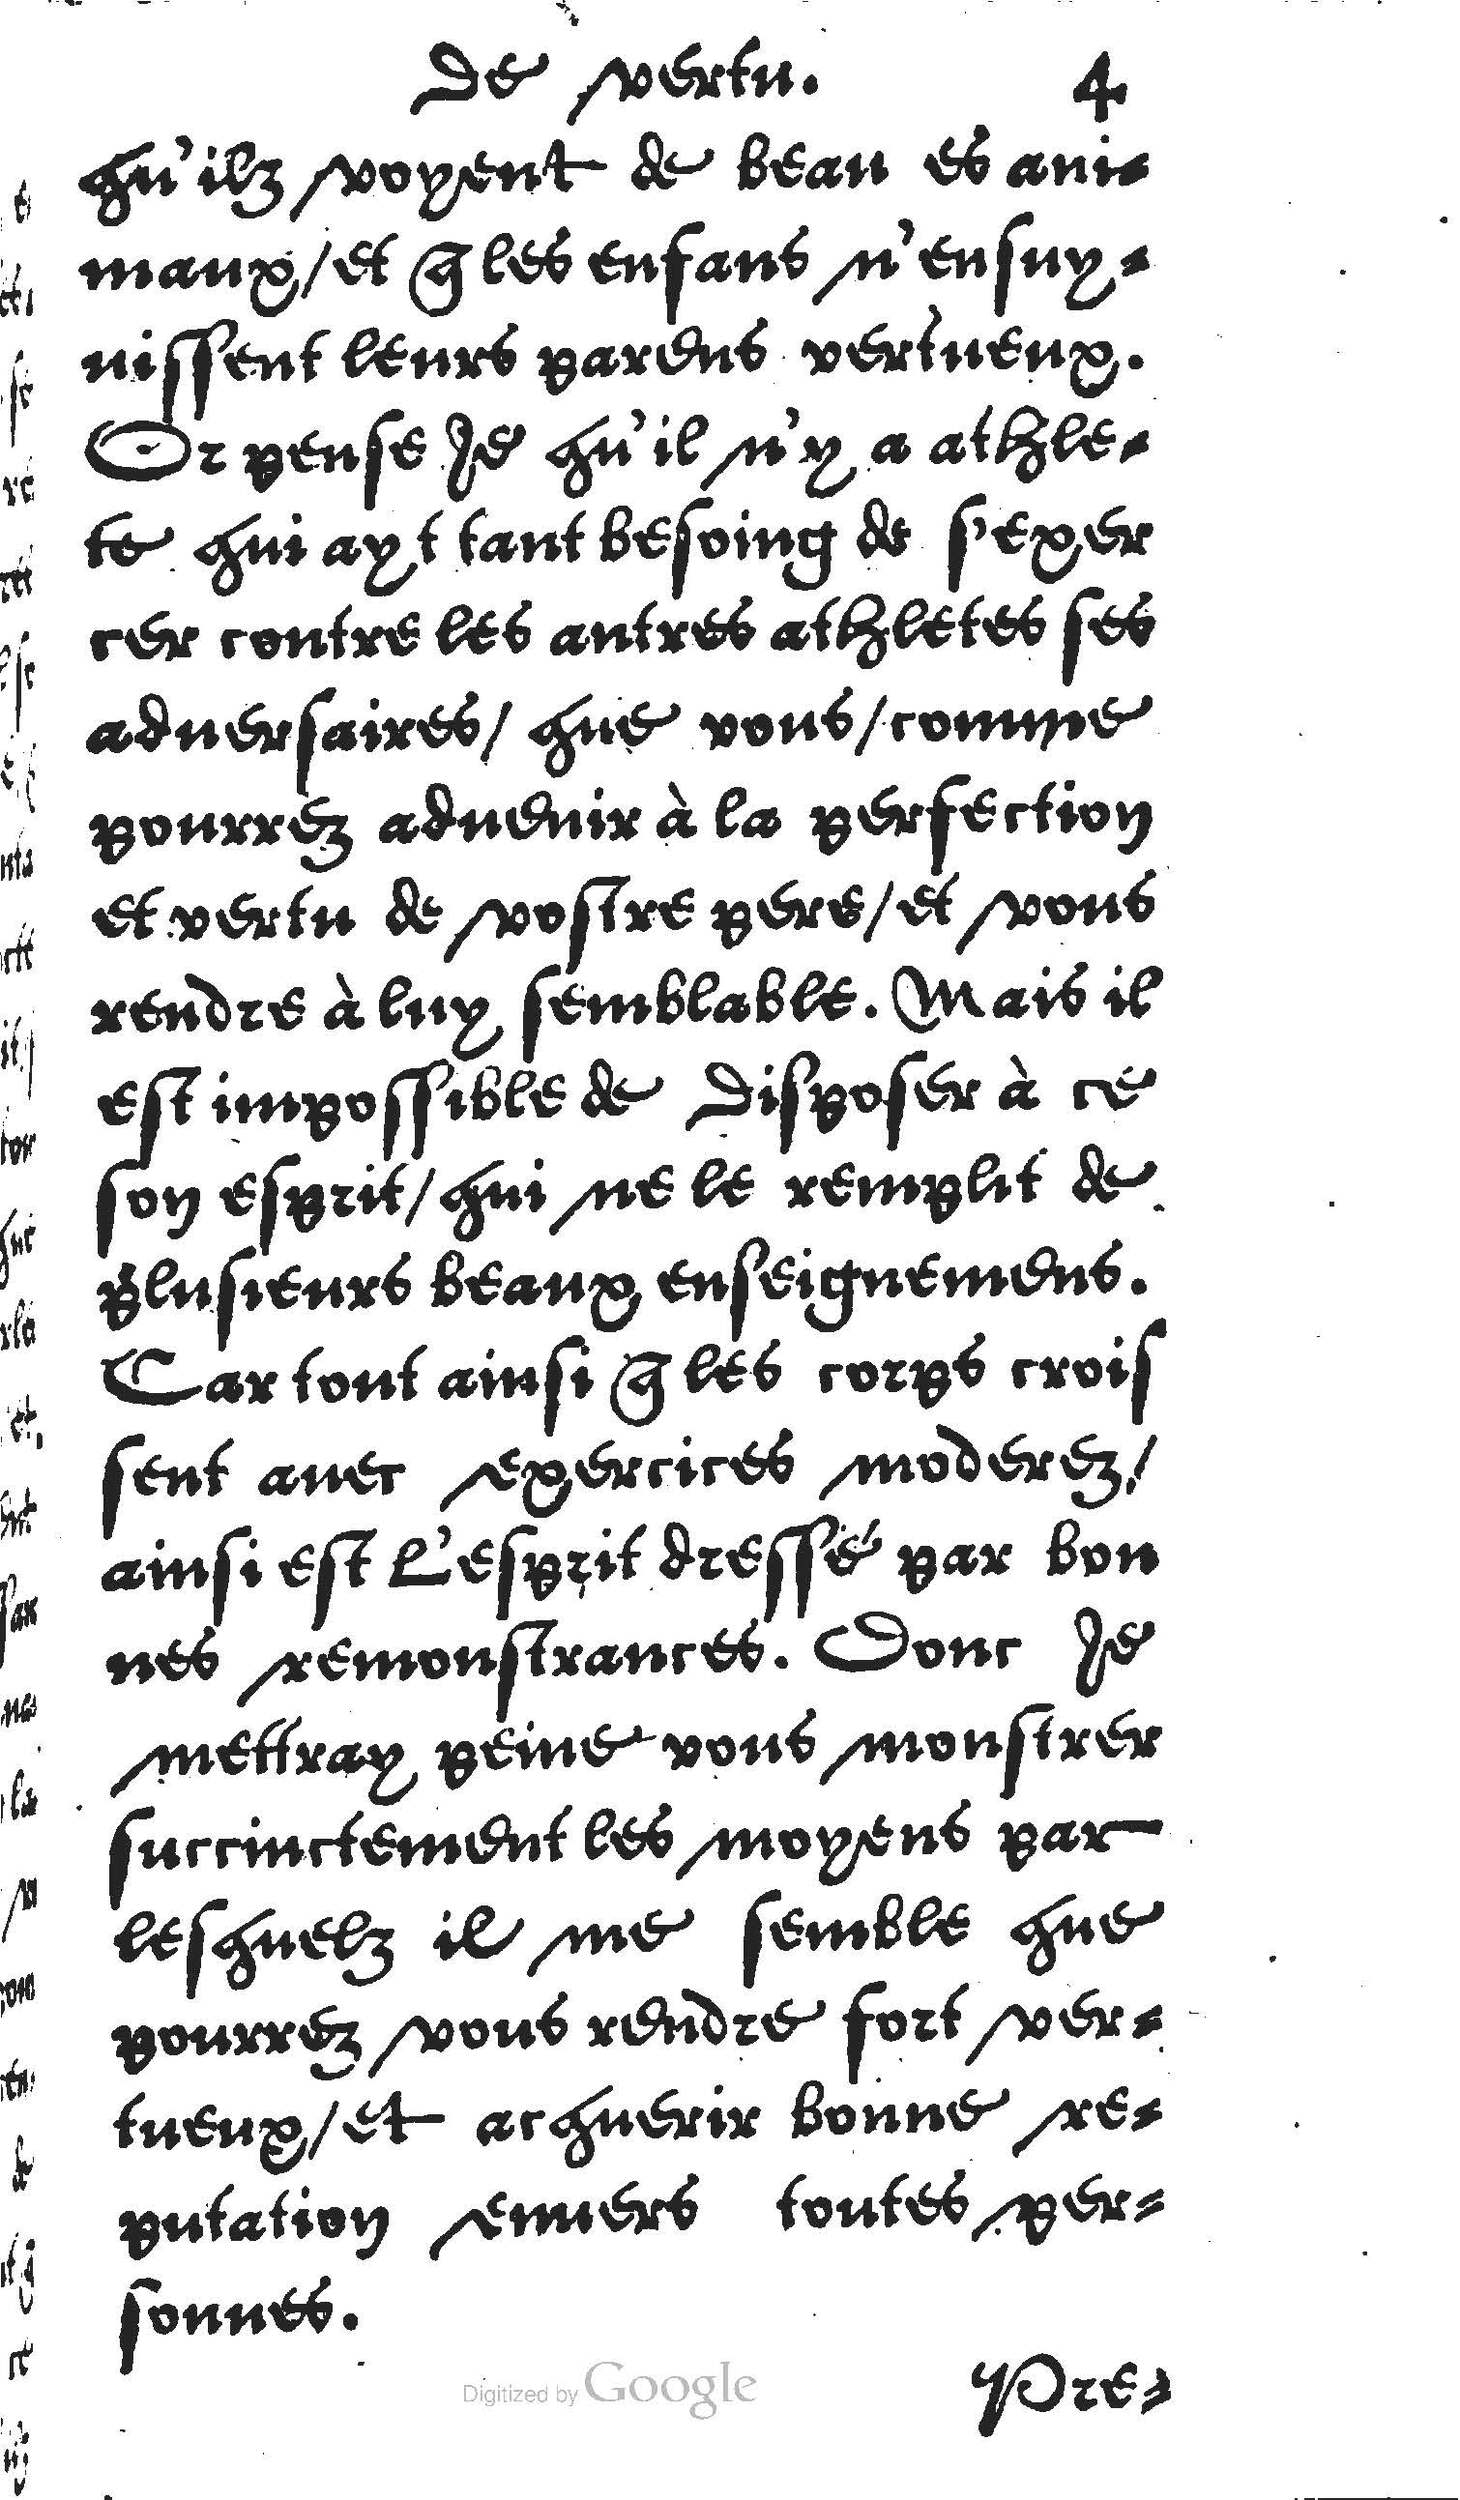 De vertu. 4
qu'ilz voyent de beau es ani-
maux/et q̃ les enfans n'ensuy-
uissent leurs parens vertueux.
Or pense Je qu'il n'y a athle-
te qui ayt tant besoing de s'exer
cer contre les autres athletes ses
aduersaires/ que vous/comme
pourrez aduenir à la perfection
et vertu de vostre pere/et vous
rendre à luy semblable. Mais il
est impossible de disposer à ce
son esprit/qui ne le remplit de
plusieurs beaux enseignemens.
Car tout ainsi q̃ les corps crois
sent auec exercices moderez/
ainsi est L'esprit dressé par bon
nes remonstrances. Donc Je
mettray peine vous monstrer
succinctement les moyens par
lesquelz il me semble que
pourrez vous rendre fort ver-
tueux/et acquerir bonne re-
putation enuers toutes per-
sonnes.
Pre-
Digitized by Google